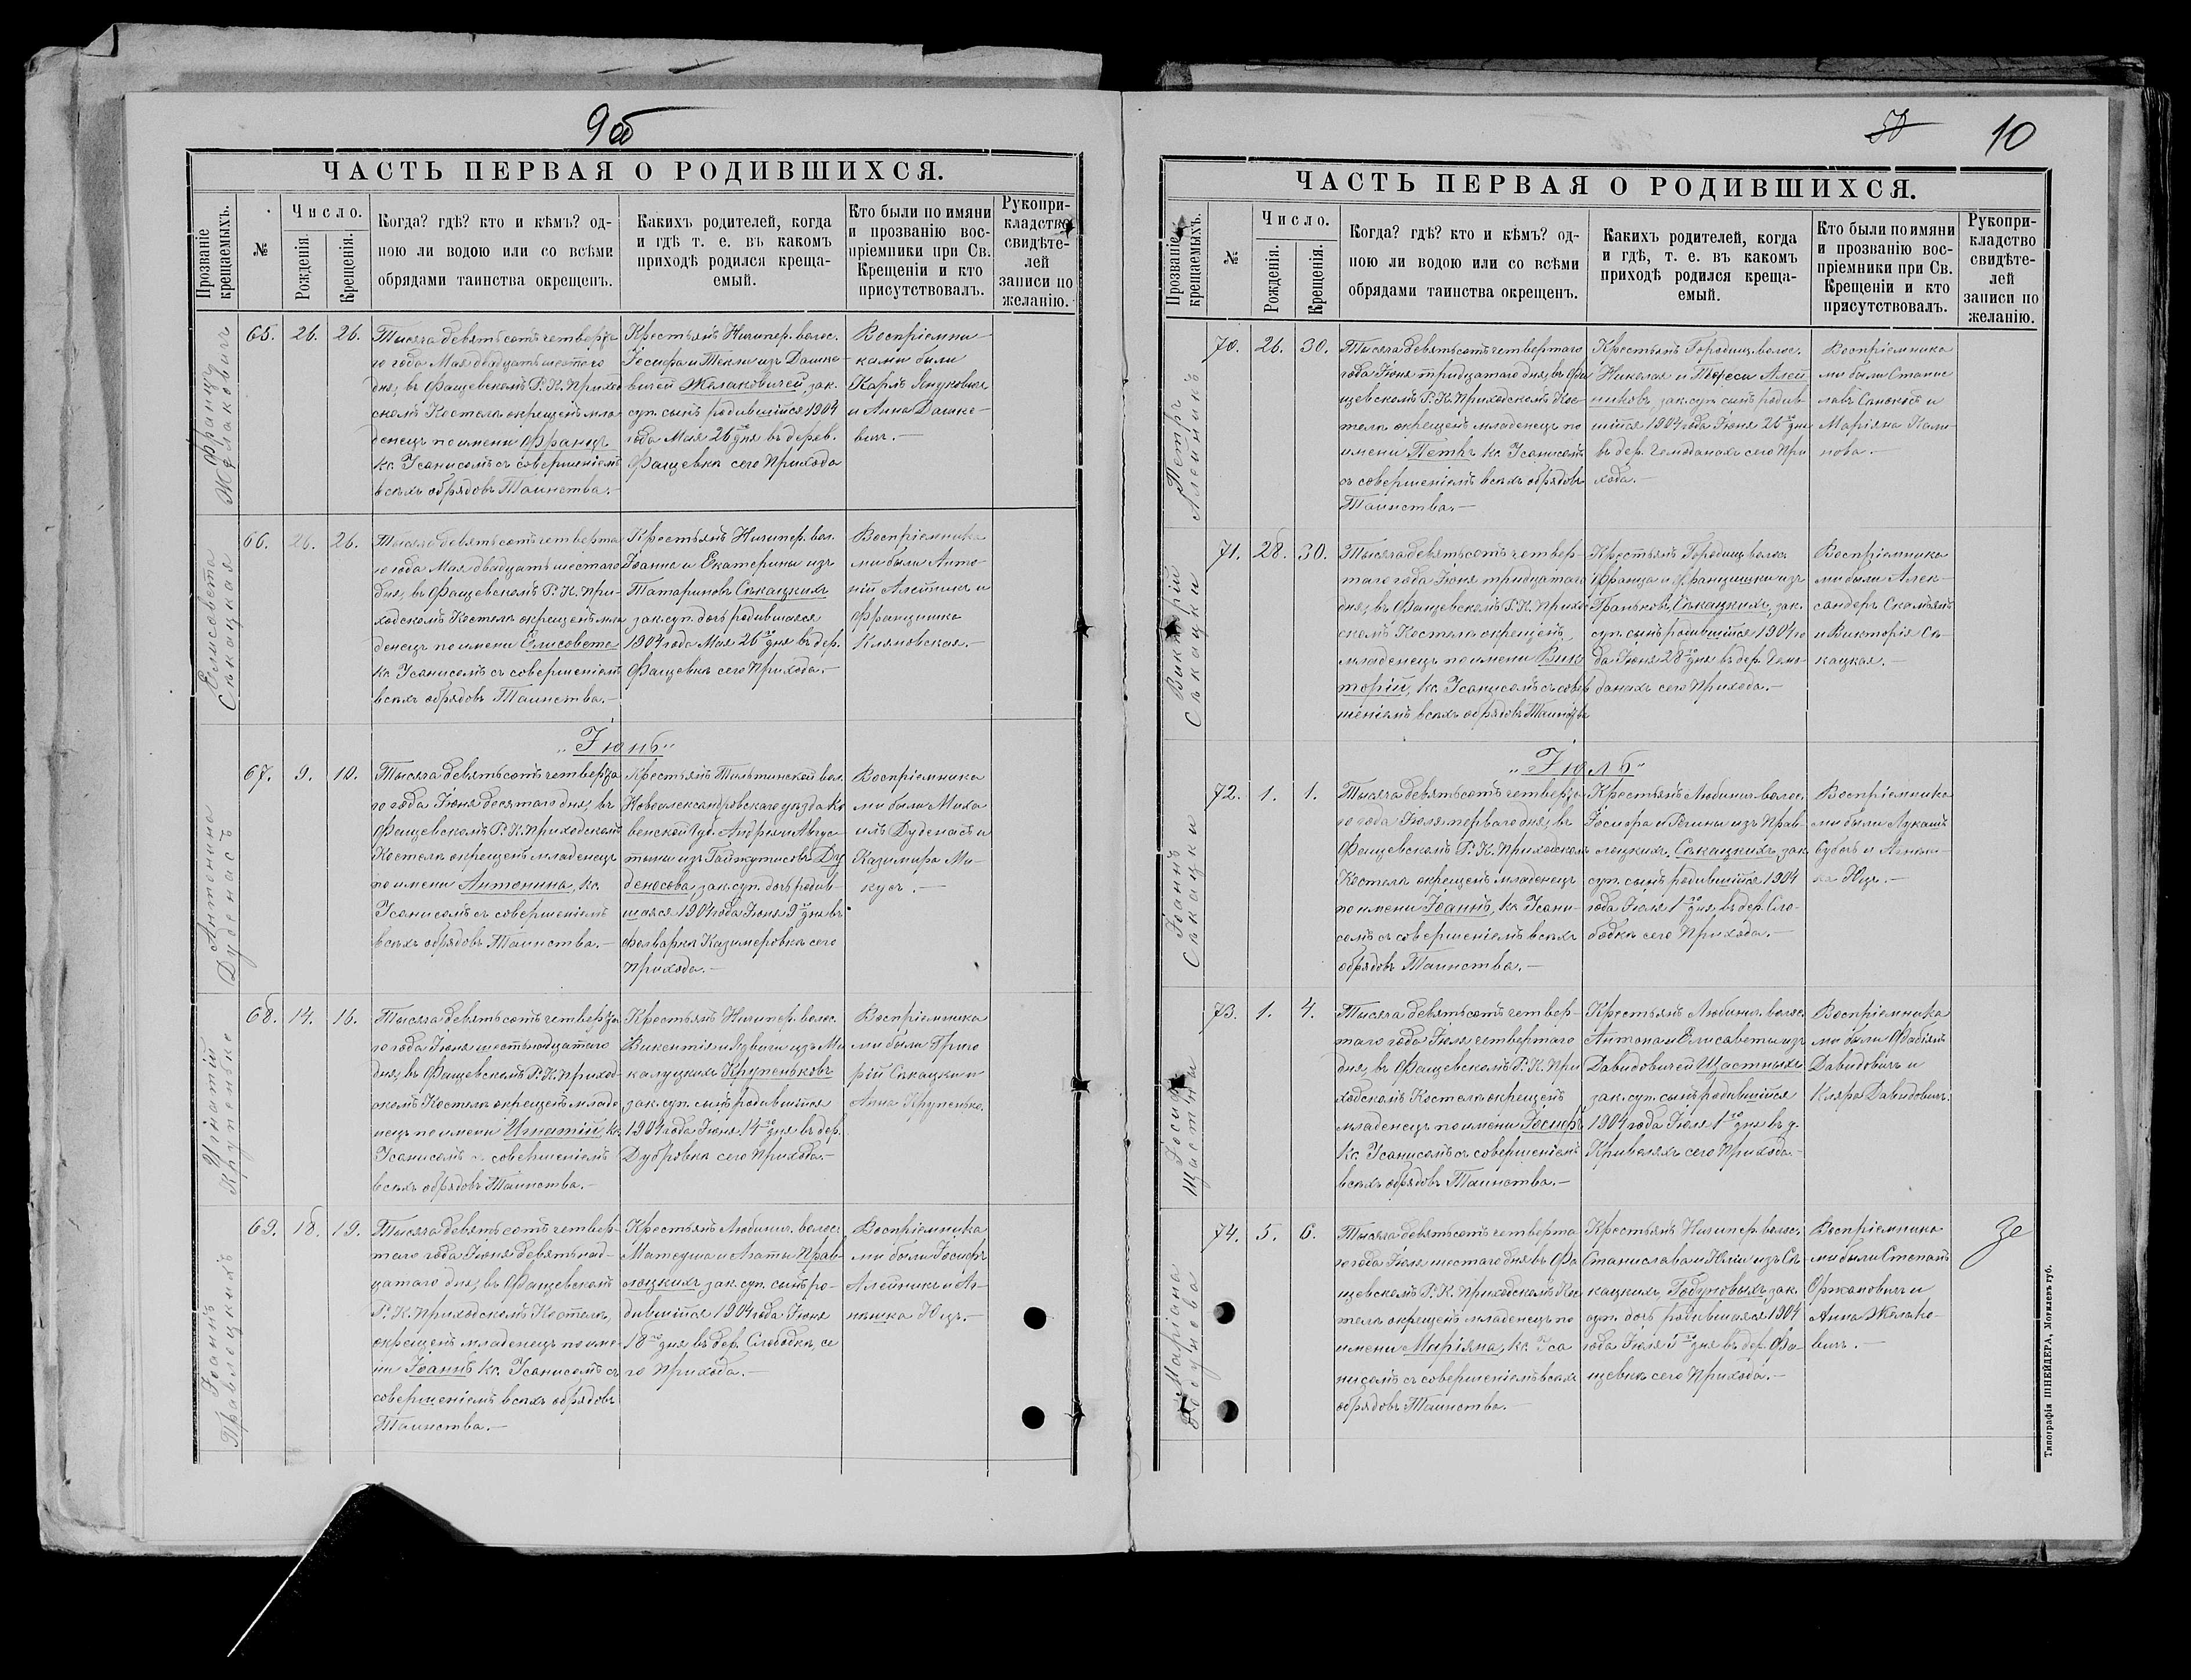 9об
ЧАСТЬ ПЕРВАЯ О РОДИВШИХСЯ.
Прозваніе крещаемыхъ.
№
Число.
Рожденія.
Крещенія.
Когда? гдѣ? кто и кѣмъ? од-
ною ли водою или со всѣми
обрядами таинства окрещенъ.
Какихъ родителей, когда
и гдѣ т. е. въ какомъ
приходѣ родился креща-
емый.
Кто были по имяни
и прозванію вос-
пріемники при Св.
Крещеніи и кто
присутствовалъ.
Рукопри-
кладство
свидѣте-
лей
записи по
желанію.
Францъ
Желаковичъ
65. 26. 26.
Тысяча девятьсотъ четверта
го года Мая двадцать шестого
дня, въ Фащевскомъ Р. К. Приход
скомъ Костелѣ окрещенъ мла
денецъ по имени Францъ
кс. Усанисомъ съ совершеніемъ
всѣхъ обрядовъ Таинства.—
Крестьянъ Ничипер. волос.
Іосифа и Теклы изъ Дашке-
вичей Желаковичей, зак.
суп. сынъ родившійся 1904
года Мая 26 го дня въ дерев.
Фащевкѣ сего Прихода
Воспріемни-
ками были
Карлъ
и Анна Дашке-
вичъ.—
Елисовета
Сѣкацкая
66. 26. 26.
Тысяча девятьсотъ четверта
го года Мая двадцать шестого
дня, въ Фащевскомъ Р. К. При-
ходскомъ Костелѣ окрещенъ мла
денецъ по имени Елисовета
кс. Усанисомъ съ совершеніемъ
всѣхъ обрядовъ Таинства.—
Крестьянъ Ничипер. вол.
Іоанна и Екатерины изъ
Татариновъ Сѣкацкихъ
зак. суп. дочь родившаяся
1904 года Мая 26 го дня въ дер.
Фащевкѣ сего Прихода.—
Воспріемника
ми были Анто-
ній Алейникъ и
Францишка
Кляновская.—
„Іюнь“
Антонина
Дуденасъ
67. 9. 10.
Тысяча девятьсотъ четверта
го года Іюня десятаго дня, въ
Фащевскомъ Р. К. Приходскомъ
Костелѣ окрещенъ младенецъ
по имени Антонина, кс.
Усанисомъ съ совершеніемъ
всѣхъ обрядовъ Таинства.—
Крестьянъ Тильтинской вол.
Новоалександровскаго уѣзда Ко
венской Губ. Андрея и Авгус-
тыны изъ Гайжутисовъ Ду
денасова, зак. суп. дочь родив-
шаяся 1904 года Іюня 9 го дня въ
Фолваркѣ Казимеровкѣ сего
Прихода.—
Воспріемника
ми были Миха
илъ Дуденасъ и
Казимира Ми-
кусъ.—
Игнатій
Крупенько
68. 14. 16.
Тысяча девятьсотъ четверта
го года Іюня шестьнадцатаго
дня, въ Фащевскомъ Р. К. Приход-
скомъ Костелѣ окрещенъ младе
нецъ по имени Игнатій, кс.
Усанисомъ съ совершеніемъ
всѣхъ обрядовъ Таинства.—
Крестьянъ Ничипер. волос.
Викентія и Ядвиги изъ Ми
калуцкихъ Крупеньковъ
зак. суп. сынъ родившійся
1904 года Іюня 14 го дня въ дер.
Дубровкѣ сего Прихода.—
Воспріемника
ми были Григо
рій Сѣкацки и
Анна Крупенько.
Іоаннъ
Правлоцкихъ
69. 18. 19.
Тысяча девятьсотъ четвер-
таго года Іюня девятьнад-
цатаго дня, въ Фащевскомъ
Р. К. Приходскомъ Костелѣ
окрещенъ младенецъ по име-
ни Іоаннъ кс. Усанисомъ съ
совершеніемъ всѣхъ обрядовъ
Таинства.—
Крестьянъ Любинич. волос.
Матеуша и Агаты Прав-
лоцкихъ зак. суп. сынъ ро-
дившійся 1904 года Іюня
18 го дня въ дер. Слободкѣ се
го Прихода.—
Воспріемника
ми были Іосифъ
Алейникъ и Аг-
нѣшка Юцъ.—
10
ЧАСТЬ ПЕРВАЯ О РОДИВШИХСЯ.
Прозваніе крещаемыхъ.
№
Число.
Рожденія.
Крещенія.
Когда? гдѣ? кто и кѣмъ? од-
ною ли водою или со всѣми
обрядами таинства окрещенъ.
Какихъ родителей, когда
и гдѣ, т. е. въ какомъ
приходѣ родился креща-
емый.
Кто были по имяни
и прозванію вос-
пріемники при Св.
Крещеніи и кто
присутствовалъ.
Рукопри-
кладство
свидѣте-
лей
записи по
желанію.
Петръ
Алейникъ
70. 26. 30.
Тысяча девятьсотъ четвертаго
года Іюня тридцатаго дня, въ Фа
щевскомъ Р. К. Приходскомъ Кос-
телѣ окрещенъ младенецъ по
имени Петръ кс. Усанисомъ
съ совершеніемъ всѣхъ обрядовъ
Таинства.—
Крестьянъ Городищ. волос.
Николая и Тересы Алей
никовъ, зак. суп. сынъ родив-
шійся 1904 года Іюня 26 го дня
въ дер. Чемоданахъ сего При
хода.—
Воспріемника
ми были Станис
лавъ и
Маріяна Кали-
нова.—
Викторій
Сѣкацки
71. 28. 30.
Тысяча девятьсотъ четвер-
таго года Іюня тридцатаго
дня, въ Фащевскомъ Р. К. Приход
скомъ Костелѣ окрещенъ
младенецъ по имени Вик
торій, кс. Усанисомъ съ совер
шеніемъ всѣхъ обрядовъ Таинства
Крестьянъ Городищ. волос.
Франца и Францишки изъ
Граньковъ, Сѣкацкихъ, зак.
суп. сынъ родившійся 1904 го
да Іюня 28 го дня въ дер. Чемо-
данахъ сего Прихода.—
Воспріемника
ми были Алек-
сандеръ Скамьянъ
и Викторія Сѣ-
кацкая.—
„Іюль“
Іоаннъ
Сѣкацки
72. 1. 1.
Тысяча девятьсотъ четверта
го года Іюля перваго дня, въ
Фащевскомъ Р. К. Приходскомъ
Костелѣ окрещенъ младенецъ
по имени Іоаннъ, кс. Усани-
сомъ съ совершеніемъ всѣхъ
обрядовъ Таинства.—
Крестьянъ Любинич. волос.
Іосифа и Регины изъ Прав-
лоцкихъ, Сѣкацкихъ, зак.
суп. сынъ родившійся 1904
года Іюля 1 го дня, въ дер. Сло-
бодкѣ сего Прихода.—
Воспріемника
ми были Лукашъ
Субочъ и Агнѣш-
ка Юцъ.—
Іосифъ
Щастны
73. 1. 4.
Тысяча девятьсотъ четвер-
таго года Іюля четвертаго
дня, въ Фащевскомъ Р. К. При
ходскомъ Костелѣ окрещенъ
младенецъ по имени Іосифъ
кс. Усанисомъ съ совершеніемъ
всѣхъ обрядовъ Таинства.—
Крестьянъ Любинич. волос.
Антона и Елисаветы изъ
Давидовичей Щастныхъ
зак. суп. сынъ родившійся
1904 года Іюля 1 го дня въ д.
Кривеляхъ сего Прихода.—
Воспріемника
ми были Фабіянъ
Давидовичъ и
Кляра Давидовичъ.
Маріана
Годунова
74. 5. 6.
Тысяча девятьсотъ четверта
го года Іюля шестаго дня въ Фа
щевскомъ Р. К. Приходскомъ Кос
телѣ окрещенъ младенецъ по
имени Маріяна, кс. Уса
нисомъ съ совершеніемъ всѣхъ
обрядовъ Таинства.—
Крестьянъ Ничипер. волос.
Станислава и Юліи изъ Сѣ
кацкихъ, Годуновыхъ, зак.
суп. дочь родившаяся 1904
года Іюля 5 го дня въ дер. Фа-
щевкѣ сего Прихода.—
Воспріемника
ми были Степанъ
Оржановичъ и
Анна Желѣко-
вичъ.—
Типографія ШНЕЙДЕРА, Могилевъ губ.